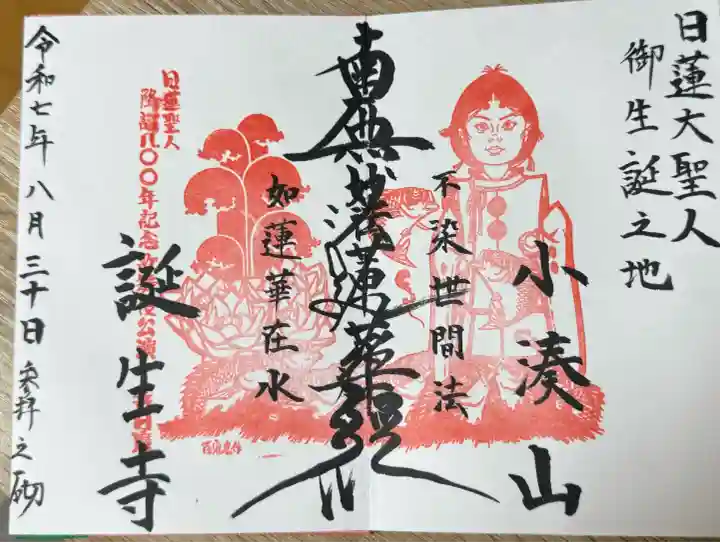 日蓮大聖人
御生誕之地
小湊山
不染世間法
南無妙法蓮華経
如蓮華在水
誕生寺
日蓮聖人
降誕八〇〇年記念
公演
令和七年八月三十日 参拝之砌